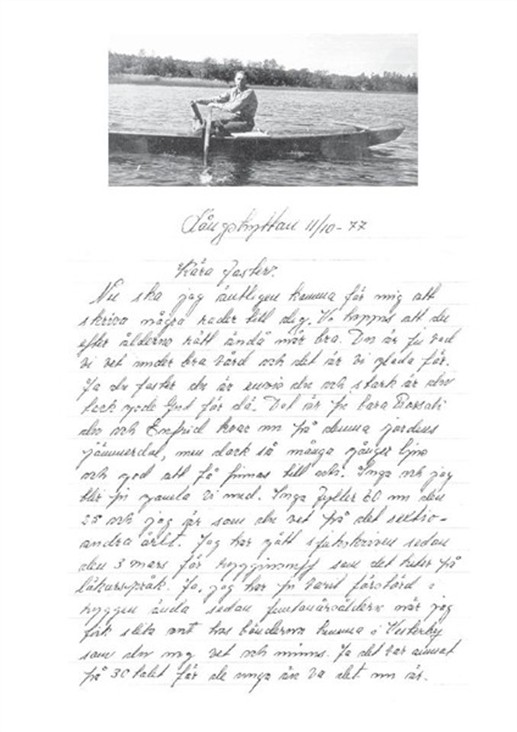 Långshyttan 11/10-77
Kära faster.
Nu ska jag äntligen komma för mig att
skriva några rader till dig. Vi hoppas att du
efter åldern rätt ändå mår bra. Du är ju vad
vi vet under bra vård och det är vi glada för.
Ja du faster du är envis du och stark är du
tack gode Gud för då. Det är ju bara
du och Enefrid kvar nu på denna jordens
jämmerdal, men dock så många gånger ljus
och god att få finnas till och. Inga och jag
blir ju gamla vi med. Inga fyller 60 nu den
25 och jag är som du vet på det sextio-
andra året. Jag har gått sjukskriven sedan
den 3 mars för som det heter på
läkarspråk. Ja, jag har ju varit förstörd i
ryggen ända sedan femtonårsåldern när jag
fick slita ont hos bönderna hemma i Vesterby
som du nog vet och minns. Ja det var annat
på 30 talet för de unga än va det nu är.